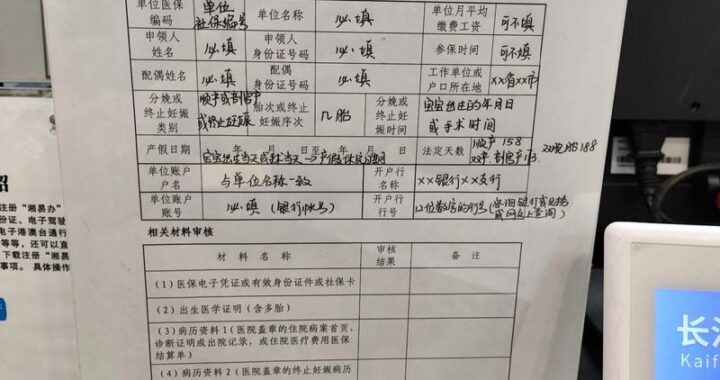 单位医保编码 单位社保编号 单位名称 必填 单位月平均缴费工资 可不填
申领人姓名 必填 申领人身份证号码 必填 参保时间 可不填
配偶姓名 必填 配偶身份证号码 必填 工作单位或户口所在地 xx省xx市
分娩或终止妊娠类别 顺产或剖宫产或终止妊娠 胎次或终止妊娠序次 几胎 分娩或终止妊娠时间 宝宝出生的年月日或手术时间
产假日期 年 月 日至 年 月 日 宝宝出生当天或 当天 与产假休完的日期 法定天数 顺产158 剖宫产 双胞胎188
单位账户户名 与单位名称一致 开户行名称 xx银行xx支行
单位账户账号 必填(银行帐号) 开户行行号 12位数字的行号(咨询银行或 或网上查询)
相关材料审核
材料名称 审核结果 备注
(1)医保电子凭证或有效身份证件或社保卡
(2)出生医学证明(含多胎)
(3)病历资料1(医院盖章的住院病案首页,
诊断证明或出院记录,或住院医疗费用医保
结算单)
(4)病历资料2(医院盖章的终止妊娠病历
注册“湘易办”
份证、电子驾驶
电子港澳台通行
等等,还可以直
下载注册“湘易
事项。具体操作
长
Kaif